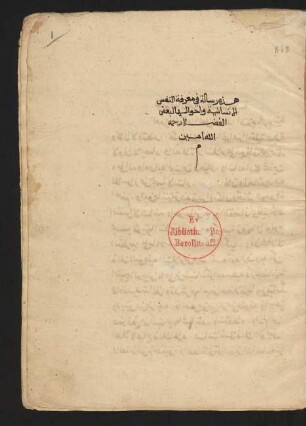 1
هذه رسالة في معرفة النفس
الانسانية واحوالها لبعض
الفضلاء رحمه
الله امين
م
Ex
Biblioth. Re
Berolinens